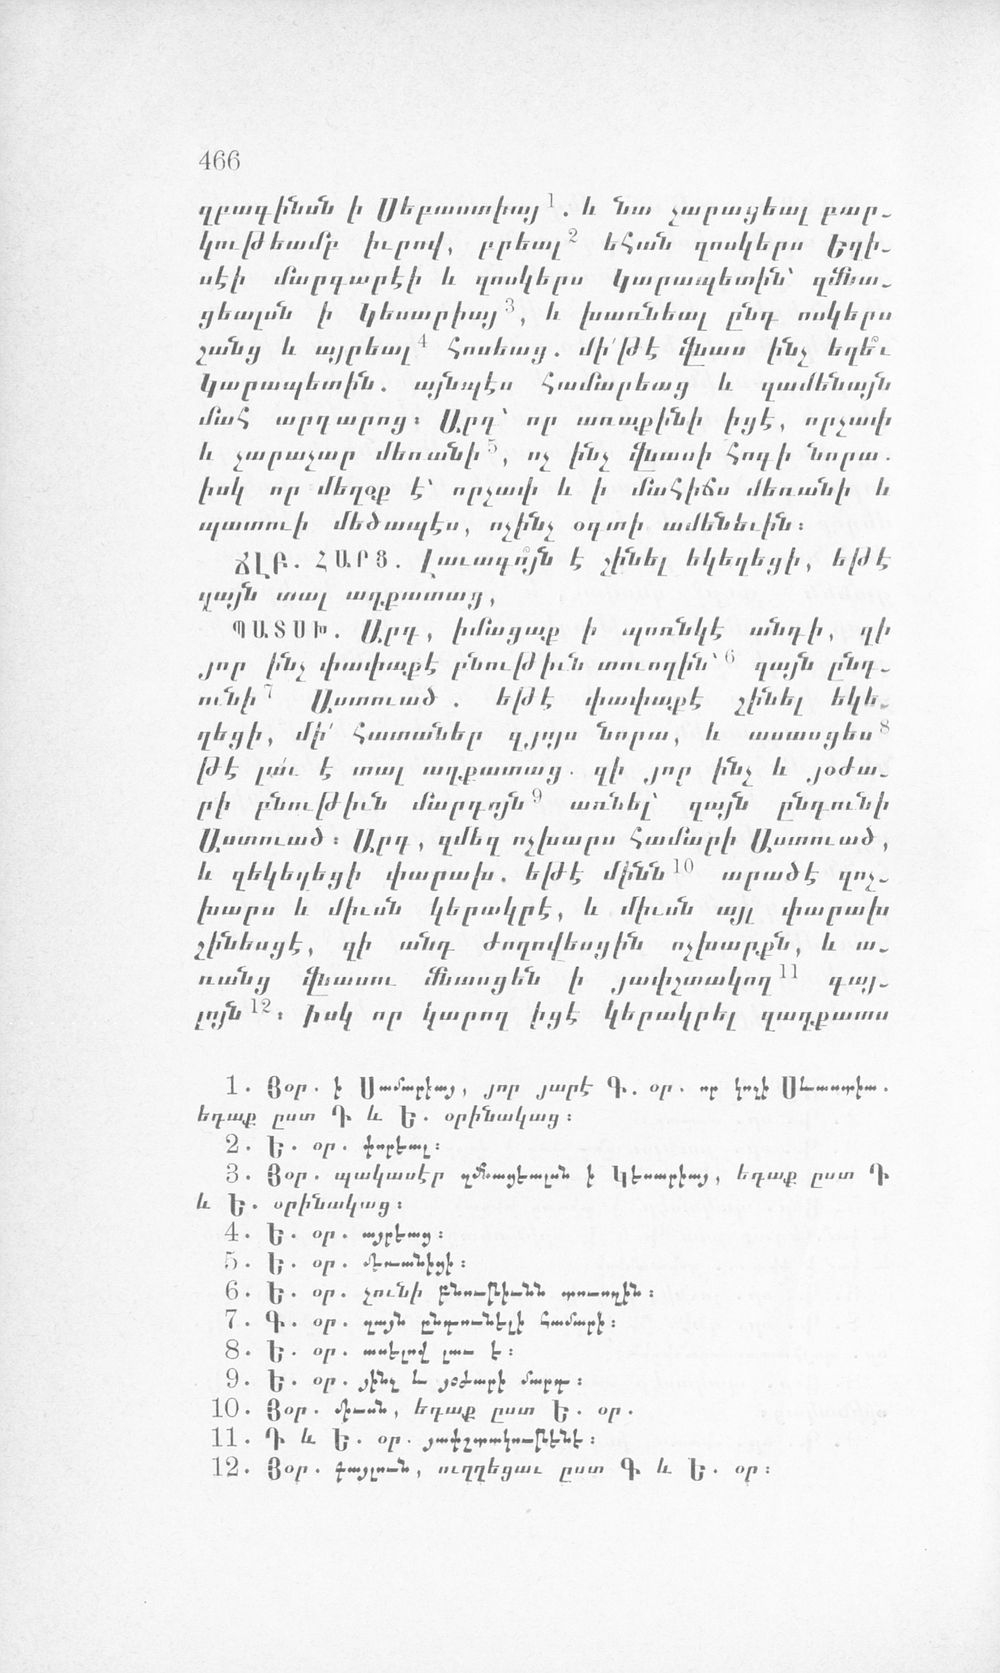 466
զբագինսն ի Սեբաստիայ¹. և նա չարացեալ բար-
կութեամբ իւրով, բրեալ² եհան զոսկերս Եղի-
սէի մարգարէի և զոսկերս Կարապետին՝ զմնա-
ցեալսն ի Կեսարիայ³, և խառնեալ ընդ ոսկերս
շանց և այրեալ⁴ հոսեաց. մի՛ թէ վնաս ինչ եղե՞ւ
Կարապետին. այնպէս համարեաց և զամենայն
մահ արդարոց։ Արդ՝ որ առաքինի իցէ, որչափ
և չարաչար մեռանի⁵, ոչ ինչ վնասի հոգի նորա.
իսկ որ մեղօք է՝ որչափ և ի մահիճս մեռանի և
պատուի մեծապէս, ոչինչ օգտի ամենեւին։
ՃԼԲ. ՀԱՐՑ. Լաւագո՞յն է շինել եկեղեցի, եթէ
զայն տալ աղքատաց,
ՊԱՏՍԽ. Արդ, իմացաք ի պոռնկէ անդի, զի
յոր ինչ փափաքէ բնութիւն տուողին՝⁶ զայն ընդ-
ունի⁷ Աստուած. եթէ փափաքէ շինել եկե-
ղեցի, մի՛ հատաներ զյոյս նորա, և ասասցես⁸
թէ լաւ է տալ աղքատաց. զի յոր ինչ և յօժա-
րի բնութիւն մարդոյն⁹ առնել՝ զայն ընդունի
Աստուած։ Արդ, զմեզ ոչխարս համարի Աստուած,
և զեկեղեցի փարախ. եթէ մինն¹⁰ արածէ զոչ-
խարս և միւսն կերակրէ, և միւսն այլ փարախ
շինեսցէ, զի անդ ժողովեսցին ոչխարքն, և ա-
ռանց վնասու մնասցեն ի յափշտակող¹¹ գայ-
լոյն¹²։ իսկ որ կարող իցէ կերակրել զաղքատս
1. Յօր. ի Սամարիայ, յոր յարէ Գ. օր. որ կոչի Սևաստիա.
եդաք ըստ Դ և Ե. օրինակաց։
2. Ե. օր. փորեալ։
3. Յօր. պակասէր զմնացեալսն ի Կեսարիայ, եդաք ըստ Դ
և Ե. օրինակաց։
4. Ե. օր. այրեաց։
5. Ե. օր. մեռանիցի։
6. Ե. օր. չունի բնութիւնն տուողին։
7. Գ. օր. զայն ընդունելի համարի։
8. Ե. օր. ասելով լաւ է։
9. Ե. օր. յինչ և յօժարի մարդ։
10. Յօր. միւսն, եդաք ըստ Ե. օր.
11. Դ և Ե. օր. յափշտակութենէ։
12. Յօր. գայլուն, ուղղեցաւ ըստ Գ և Ե. օր։